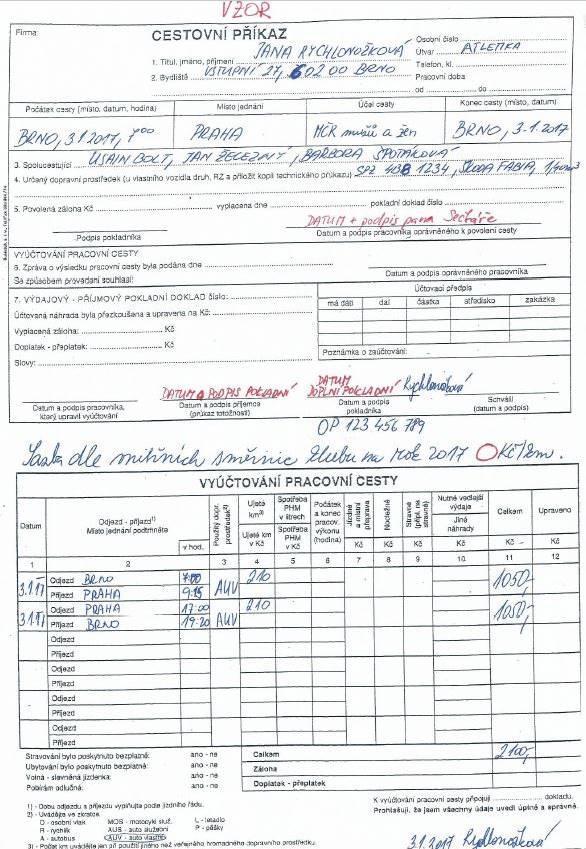 VZOR
Firma:
CESTOVNÍ PŘÍKAZ
Osobní číslo
1. Titul, jméno, příjmení JANA RYCHLONOŽKOVÁ
Útvar ATLETIKA
2. Bydliště VSTUPNÍ 27, 602 00 BRNO
Telefon, kl.
Pracovní doba
od do
Počátek cesty (místo, datum, hodina) Místo jednání Účel cesty Konec cesty (místo, datum)
BRNO, 3.1.2017, 7:00 PRAHA MČR mužů a žen BRNO, 3.1.2017
3. Spolucestující USAIN BOLT, JAN ŽELEZNÝ, BARBORA ŠPOTÁKOVÁ
4. Určený dopravní prostředek (u vlastního vozidla druh, RZ a přiložit kopii technického průkazu) SPZ 4B8 1234, ŠKODA FABIA,
5. Povolená záloha Kč vyplacena dne pokladní doklad číslo:
DATUM + podpis pana
Podpis pokladníka Datum a podpis pracovníka oprávněného k povolení cesty
VYÚČTOVÁNÍ PRACOVNÍ CESTY
6. Zpráva o výsledku pracovní cesty byla podána dne
Se způsobem provedení souhlasí:
Datum a podpis oprávněného pracovníka
7. VÝDAJOVÝ - PŘÍJMOVÝ POKLADNÍ DOKLAD číslo:
Účtovací předpis
Účtovaná náhrada byla přezkoušena a upravena na Kč:
má dáti dal částka středisko zakázka
Vyplacená záloha: Kč
Doplatek - přeplatek: Kč
Slovy:
Poznámka o zaúčtování:
DATUM A PODPIS POKLADNÍ DATUM DOPLNÍ POKLADNÍ Rychlonožková
Datum a podpis pracovníka, který upravil vyúčtování
Datum a podpis příjemce (průkaz totožnosti)
Datum a podpis pokladníka
Schválil (datum a podpis)
OP 123 456 789
Sazba dle vnitřních směrnic klubu na rok 2017 Kč/km.
VYÚČTOVÁNÍ PRACOVNÍ CESTY
Datum
Odjezd - příjezd1)
Místo jednání podtrhněte
v hod.
Použitý dopr. prostředek2)
Ujeté km3)
Ujeté km v Kč
Spotřeba PHM v litrech
Spotřeba PHM v Kč
Počátek a konec pracov. výkonu (hodina)
Jízdné a místní přeprava
Nocležné
Stravné
Nutné vedlejší výdaje
Jiné náhrady
Celkem
Upraveno
Kč Kč Kč Kč Kč Kč
1 2 3 4 5 6 7 8 9 10 11 12
3.1.17 Odjezd BRNO 7:00 AUV 210 1050,-
Příjezd PRAHA 9:15
3.1.17 Odjezd PRAHA 17:00 AUV 210 1050,-
Příjezd BRNO 19:20
Odjezd
Příjezd
Odjezd
Příjezd
Odjezd
Příjezd
Odjezd
Příjezd
Stravování bylo poskytnuto bezplatně: ano - ne Celkem 2100,-
Ubytování bylo poskytnuto bezplatně: ano - ne Záloha
Volná - slevněná jízdenka: ano - ne Doplatek - přeplatek
Pobírám odlučné: ano - ne
K vyúčtování pracovní cesty připojuji dokladů.
Prohlašuji, že jsem všechny údaje uvedl úplně a správně.
1) - Dobu odjezdu a příjezdu vyplňujte podle jízdního řádu.
2) - Uvádějte ve zkratce
O - osobní vlak MOS - motocykl služ. L - letadlo
R - rychlík AUS - auto služební P - pěšky
A - autobus AUV - auto vlastní
3) - Počet km uvádějte jen při použití jiného než veřejného hromadného dopravního prostředku
3.1.2017 Rychlonožková